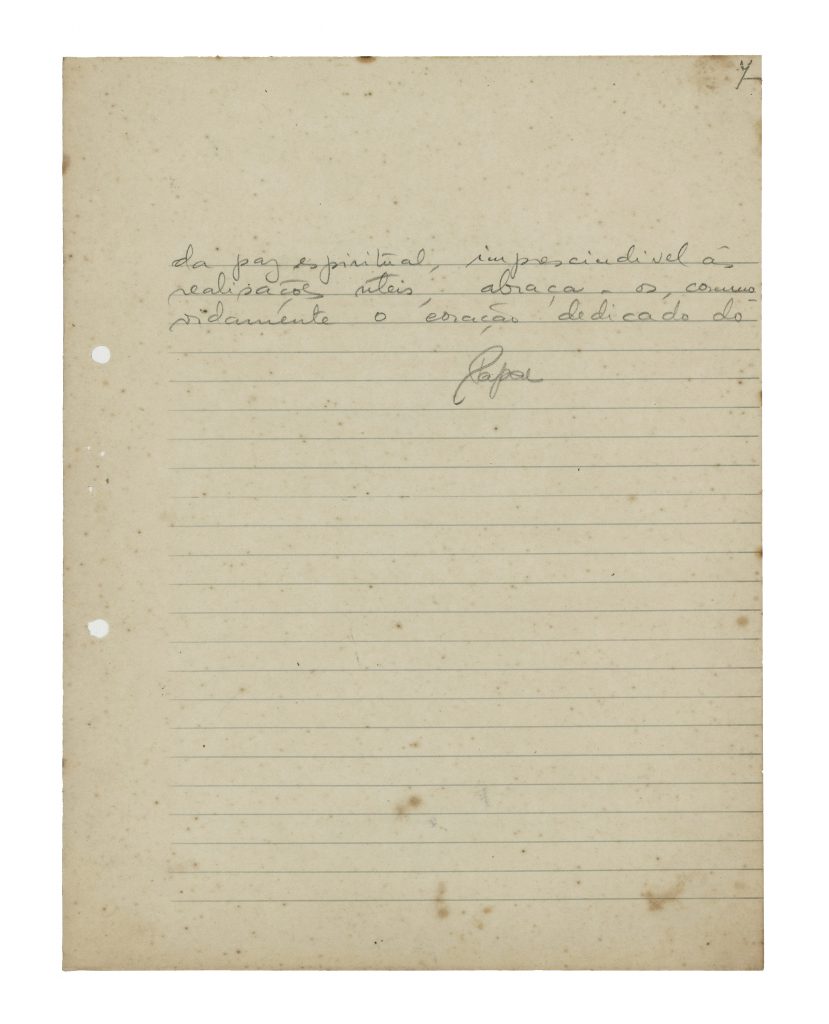 7
da paz espiritual, imprescindivel ás
realisações uteis, abraça-os, commo-
vidamente o coração dedicado do
Papae